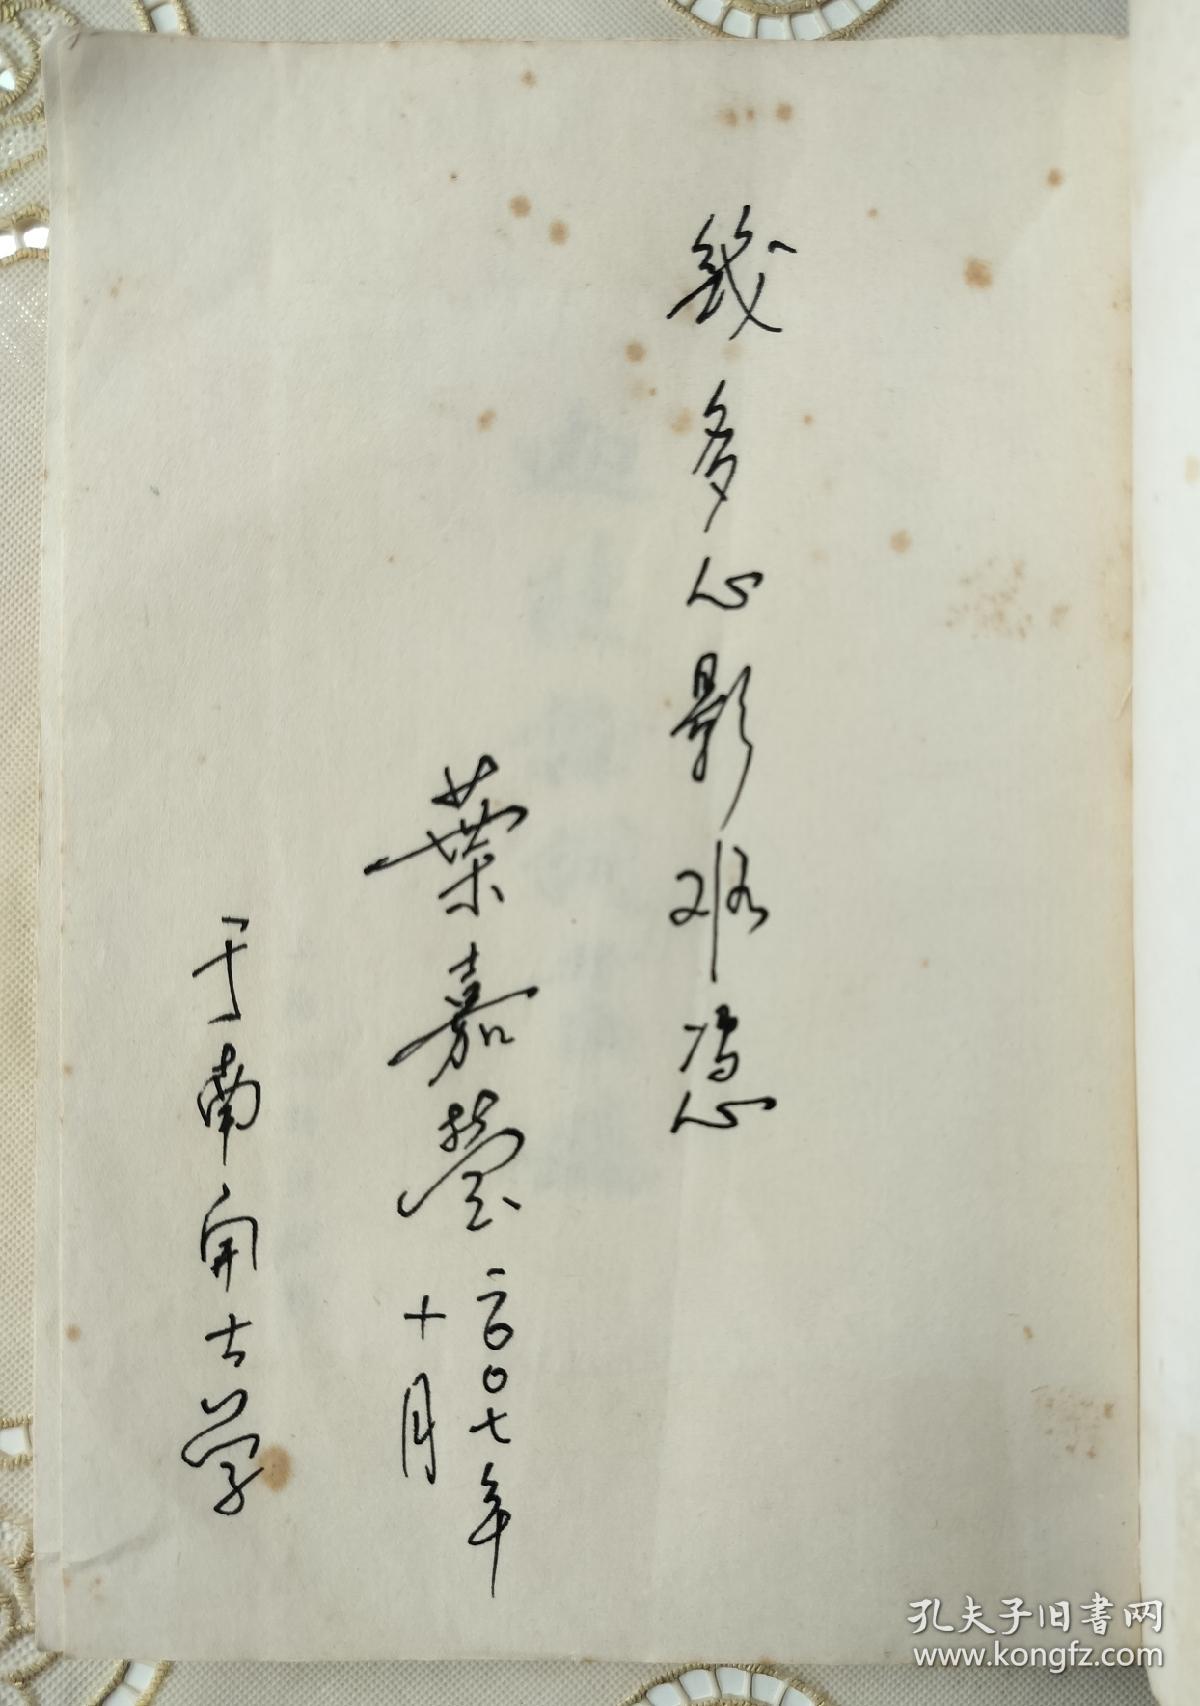 幾多心影难憑
葉嘉瑩
二〇〇七年
十月
于南開大学
孔夫子旧書网
www.kongfz.com